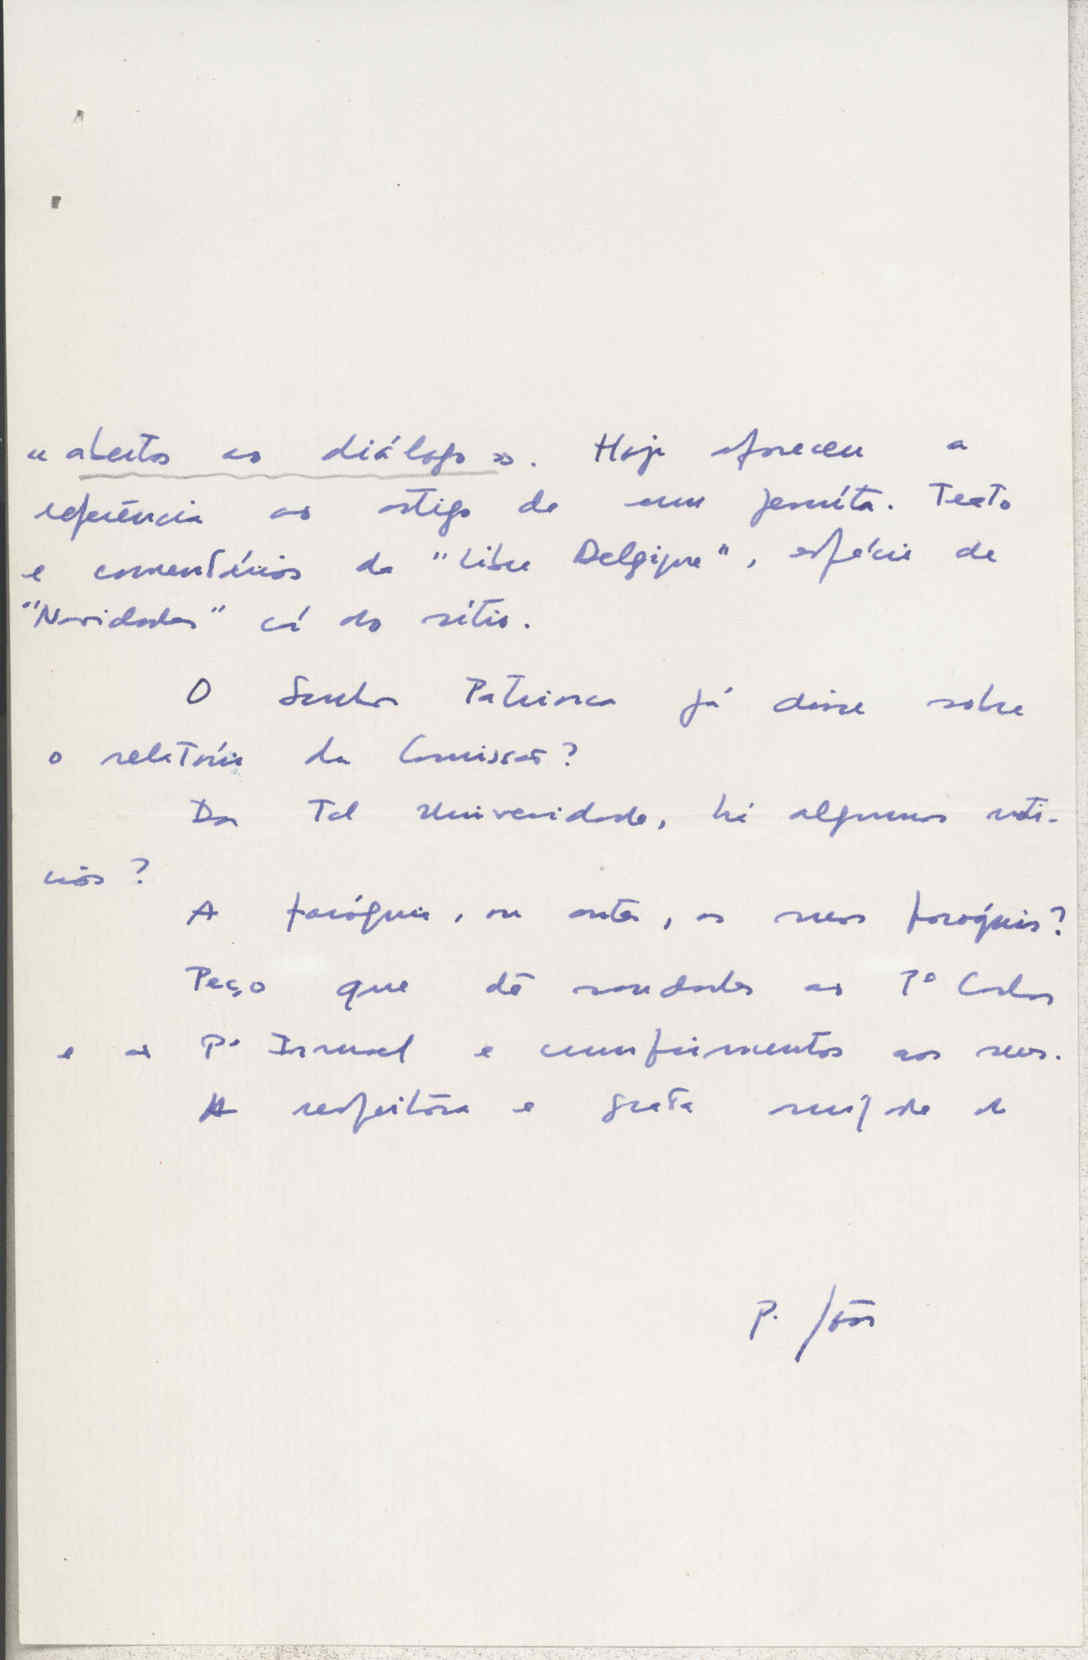 « abertos ao diálogo ». Hoje apareceu a
referência ao artigo de um jesuíta. Texto
e comentários da "Libre Belgique", espécie de
"Novidades" cá do sítio.
O Senhor Patriarca já disse sobre
o relatório da Comissão?
Da Tal Universidade, há algumas notí-
cias?
A paróquia, ou antes, os seus paróquis?
Peço que dê saudades ao Pe Carlos
e ao Pe Ismael e cumprimentos aos seus.
A respeitosa e grata amizade do
P. João